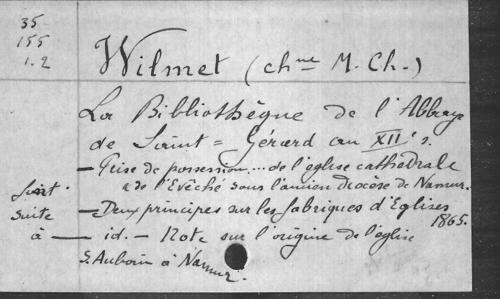 35
155
1.2
Wilmet (chne M. Ch.)
La Bibliothèque de l'Abbaye
de Saint = Gérard au XIIe s.
— Prise de possession... de l'église cathédrale
& de l'Evêché sous l'ancien diocèse de Namur.
— Deux principes sur les fabriques d'Eglises
1865.
suite
à — id. — Note sur l'origine de l'église
S. Aubain à Namur.